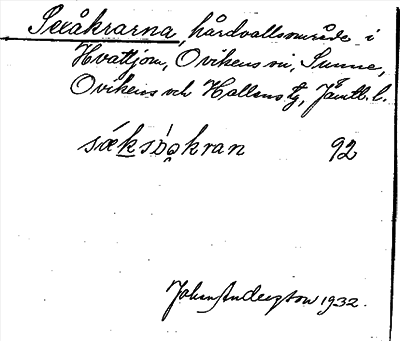 Sexåkrarna, hårdvallsområde i
Hvattjom, Ovikens sn, Sunne,
Ovikens och Hallens tg, Jämtl. l.
92
Johan Anderzson 1932.